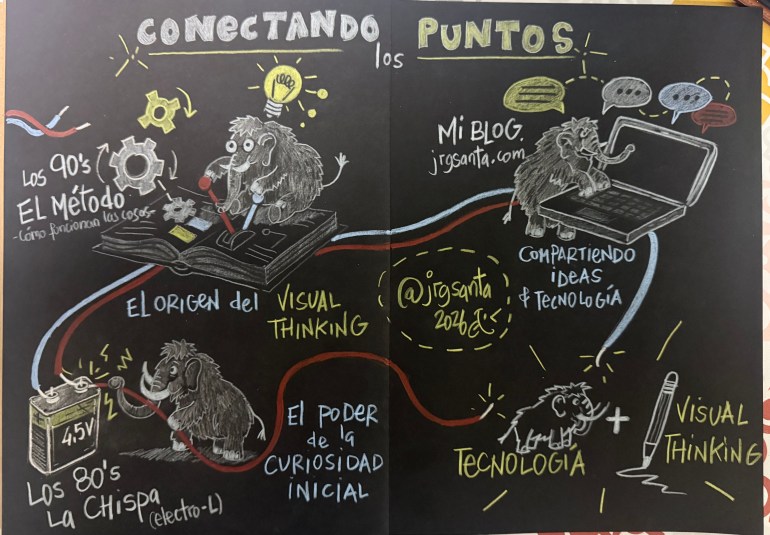 CONECTANDO
los
PUNTOS
Los 90's
EL Método
-Cómo funcionan las cosas-
EL ORIGEN del VISUAL
THINKING
Mi BLOG
jrgsanta.com
COMPARTIENDO
iDEAS
& TECNOLOGÍA
@jrgsanta
2026
4.5V
Los 80's
LA CHispa (electro-L)
El PODER
de la
CURIOSIDAD
INICIAL
TECNOLOGÍA
+
VISUAL
THINKING